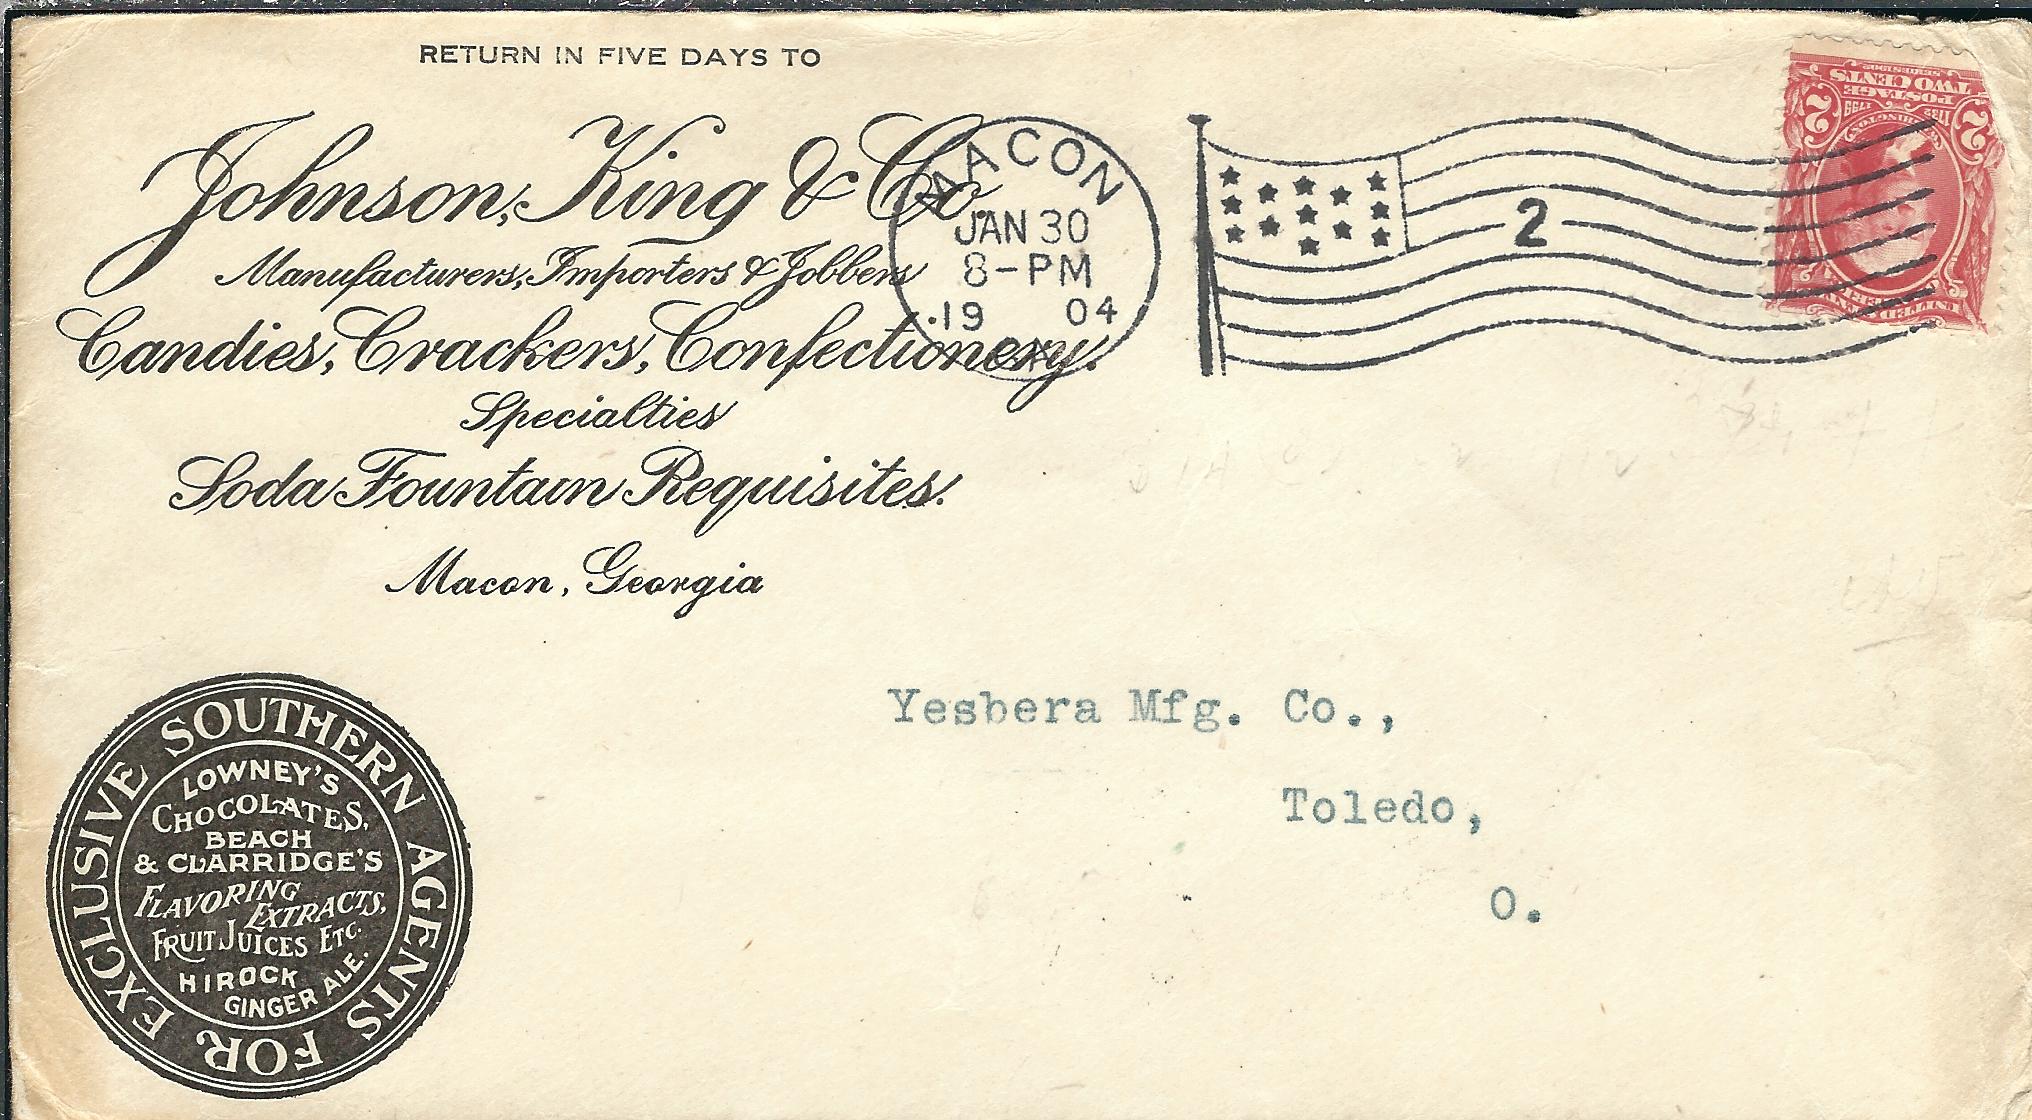 RETURN IN FIVE DAYS TO
Johnson, King & Co.
Manufacturers, Importers & Jobbers
Candies, Crackers, Confectionery.
Specialties
Soda Fountain Requisites.
Macon, Georgia
MACON
JAN 30
8-PM
19 04
GA.
2
POSTAGE
TWO CENTS
SERIES 1902
2 2
1732 1799
WASHINGTON
UNITED STATES OF AMERICA
Yesbera Mfg. Co.,
Toledo,
O.
EXCLUSIVE SOUTHERN AGENTS FOR
LOWNEY'S
CHOCOLATES,
BEACH
& CLARRIDGE'S
FLAVORING
EXTRACTS,
FRUIT JUICES ETC.
HIROCK
GINGER ALE.